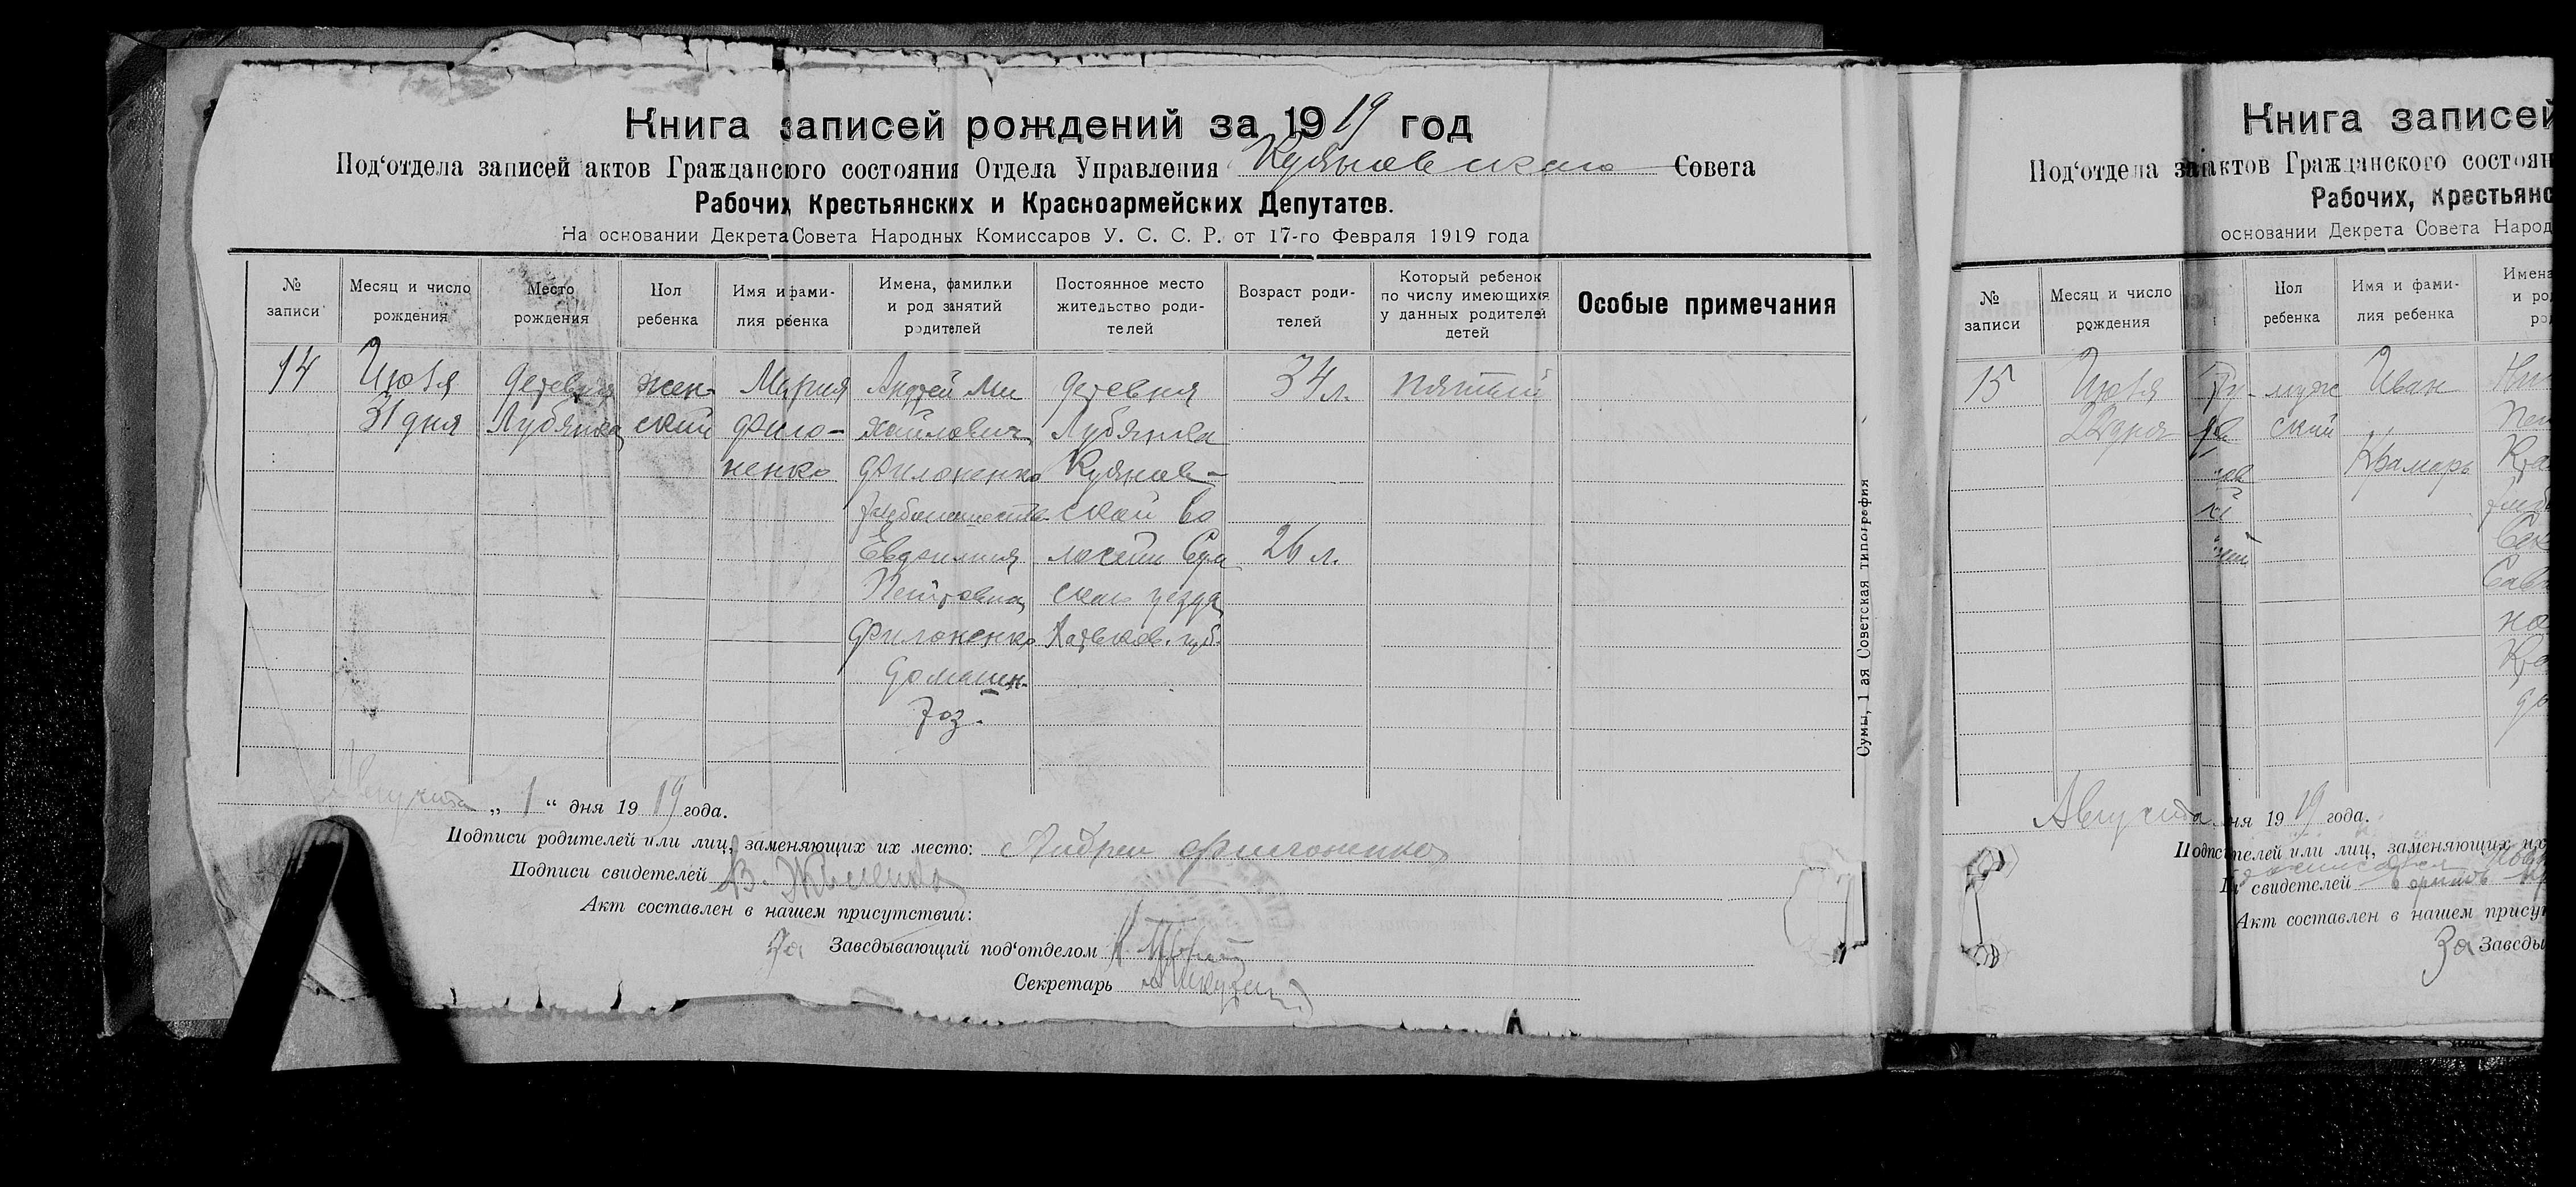 Книга записей рождений за 1919 год
Под‘отдела записей актов Гражданского состояния Отдела Управления Кудяновского Совета
Рабочих Крестьянских и Красноармейских Депутатов.
На основании Декрета Совета Народных Комиссаров У. С. С. Р. от 17-го Февраля 1919 года
№ записи
Месяц и число рождения
Место рождения
Пол ребенка
Имя и фами-
лия ребенка
Имена, фамилии
и род занятий
родителей
Постоянное место
жительство роди-
телей
Возраст роди-
телей
Который ребенок
по числу имеющихся
у данных родителей
детей
Особые примечания
14
Июля
31 дня
деревня
Лубянка
жен
ский
Мария
Фило-
ненко
Андрей Ми
хайлович
Филоненко
хлебопашество
Евдокия
Петровна
Филоненко
домашн.
хоз.
деревня
Лубянка
Кудянов-
ской во
лости Сум
ского уезда
Харьков. губ.
34 л.
26 л.
пятый
Августа „ 1 “ дня 1919 года.
Подписи родителей или лиц, заменяющих их место: Андреи Филоненко
Подписи свидетелей
Акт составлен в нашем присутствии:
За Заведывающий под‘отделом
Секретарь
Сумы, 1 ая Советская типография
Книга записей
Под‘отдела актов Гражданского состоян
Рабочих, Крестьянс
основании Декрета Совета Народ
№ записи
Месяц и число рождения
Пол ребенка
Имя и фами-
лия ребенка
Имена
и ро
ро
15
Июля
22 дня
муж
ский
Иван
Крамарь
Августа ня 1919 года.
телей или лиц, заменяющих их
свидетелей
Акт составлен в нашем присут
За Заведы